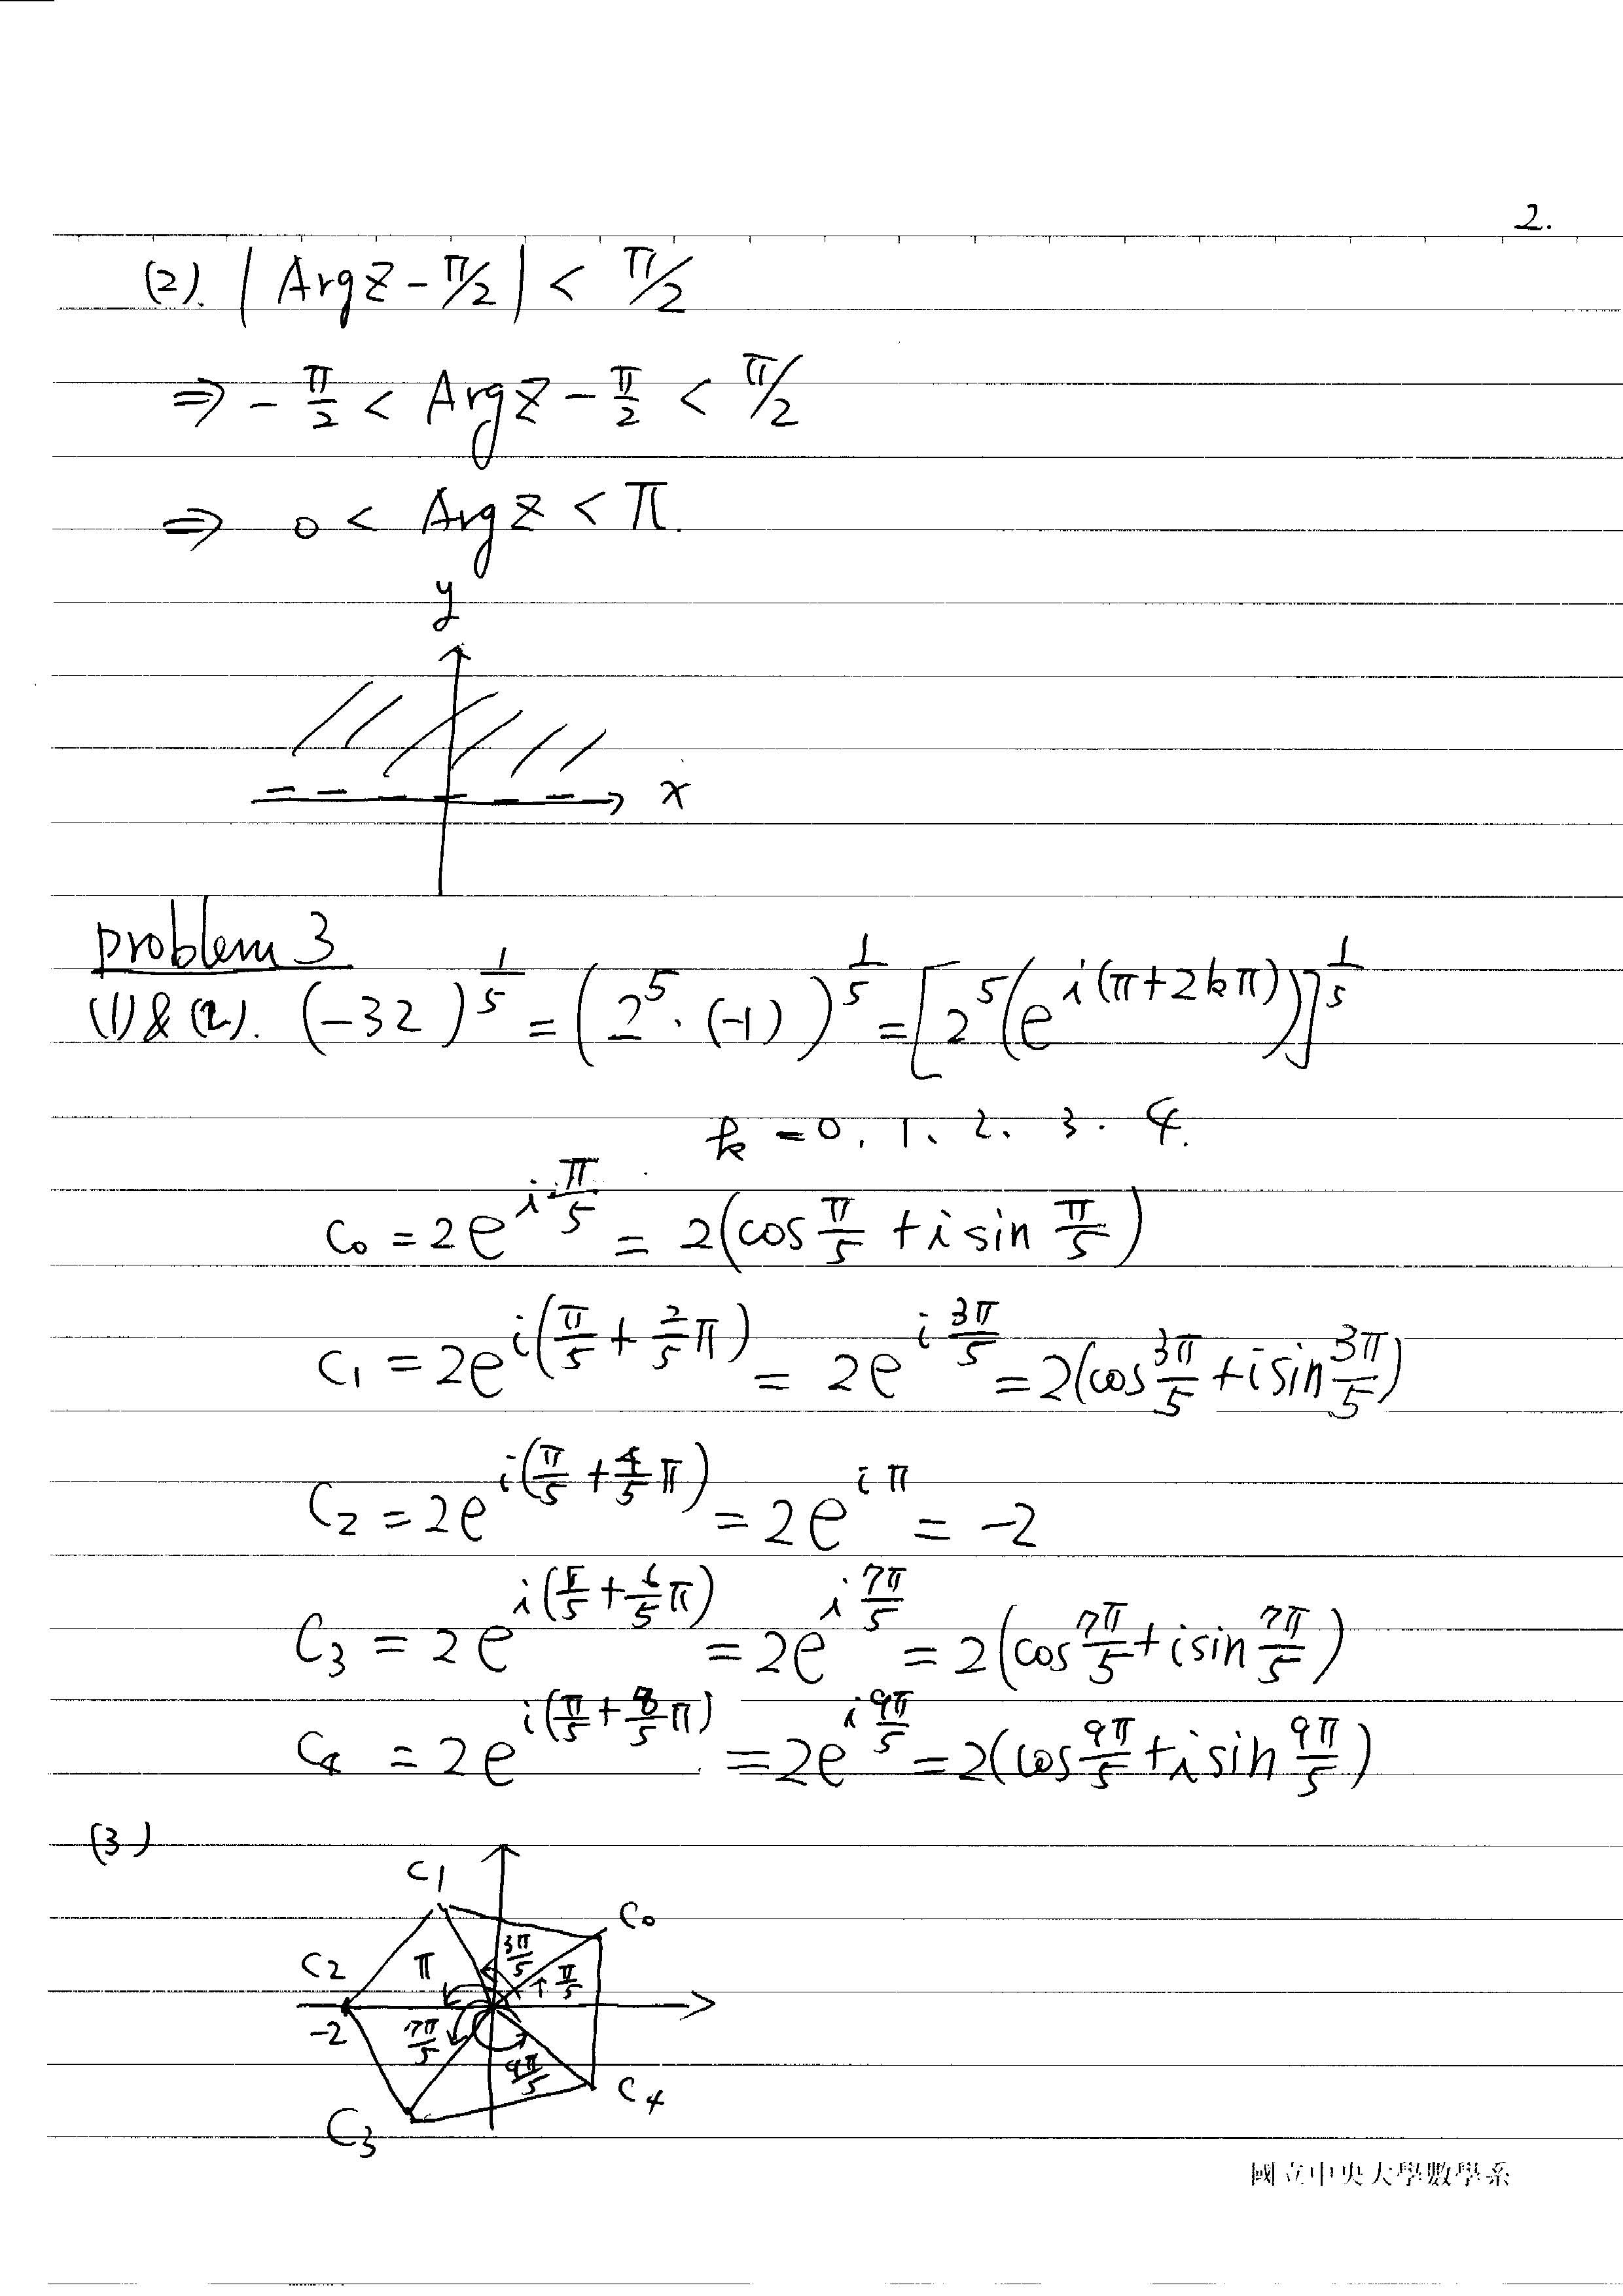 2.
(2). | Arg z - π/2 | < π/2
⇒ - π/2 < Arg z - π/2 < π/2
⇒ 0 < Arg z < π.
y
x
problem 3
(1) & (2). (-32)^{1/5} = (2^5 · (-1))^{1/5} = [2^5 (e^{i(π+2kπ)})]^{1/5}
k = 0. 1、2. 3. 4.
C_0 = 2e^{i π/5} = 2(cos π/5 + i sin π/5)
C_1 = 2e^{i(π/5 + 2/5 π)} = 2e^{i 3π/5} = 2(cos 3π/5 + i sin 3π/5)
C_2 = 2e^{i(π/5 + 4/5 π)} = 2e^{iπ} = -2
C_3 = 2e^{i(π/5 + 6/5 π)} = 2e^{i 7π/5} = 2(cos 7π/5 + i sin 7π/5)
C_4 = 2e^{i(π/5 + 8/5 π)} = 2e^{i 9π/5} = 2(cos 9π/5 + i sin 9π/5)
(3)
C_1
C_0
C_2 π 3π/5 π/5
-2 7π/5 9π/5
C_4
C_3
國立中央大學數學系